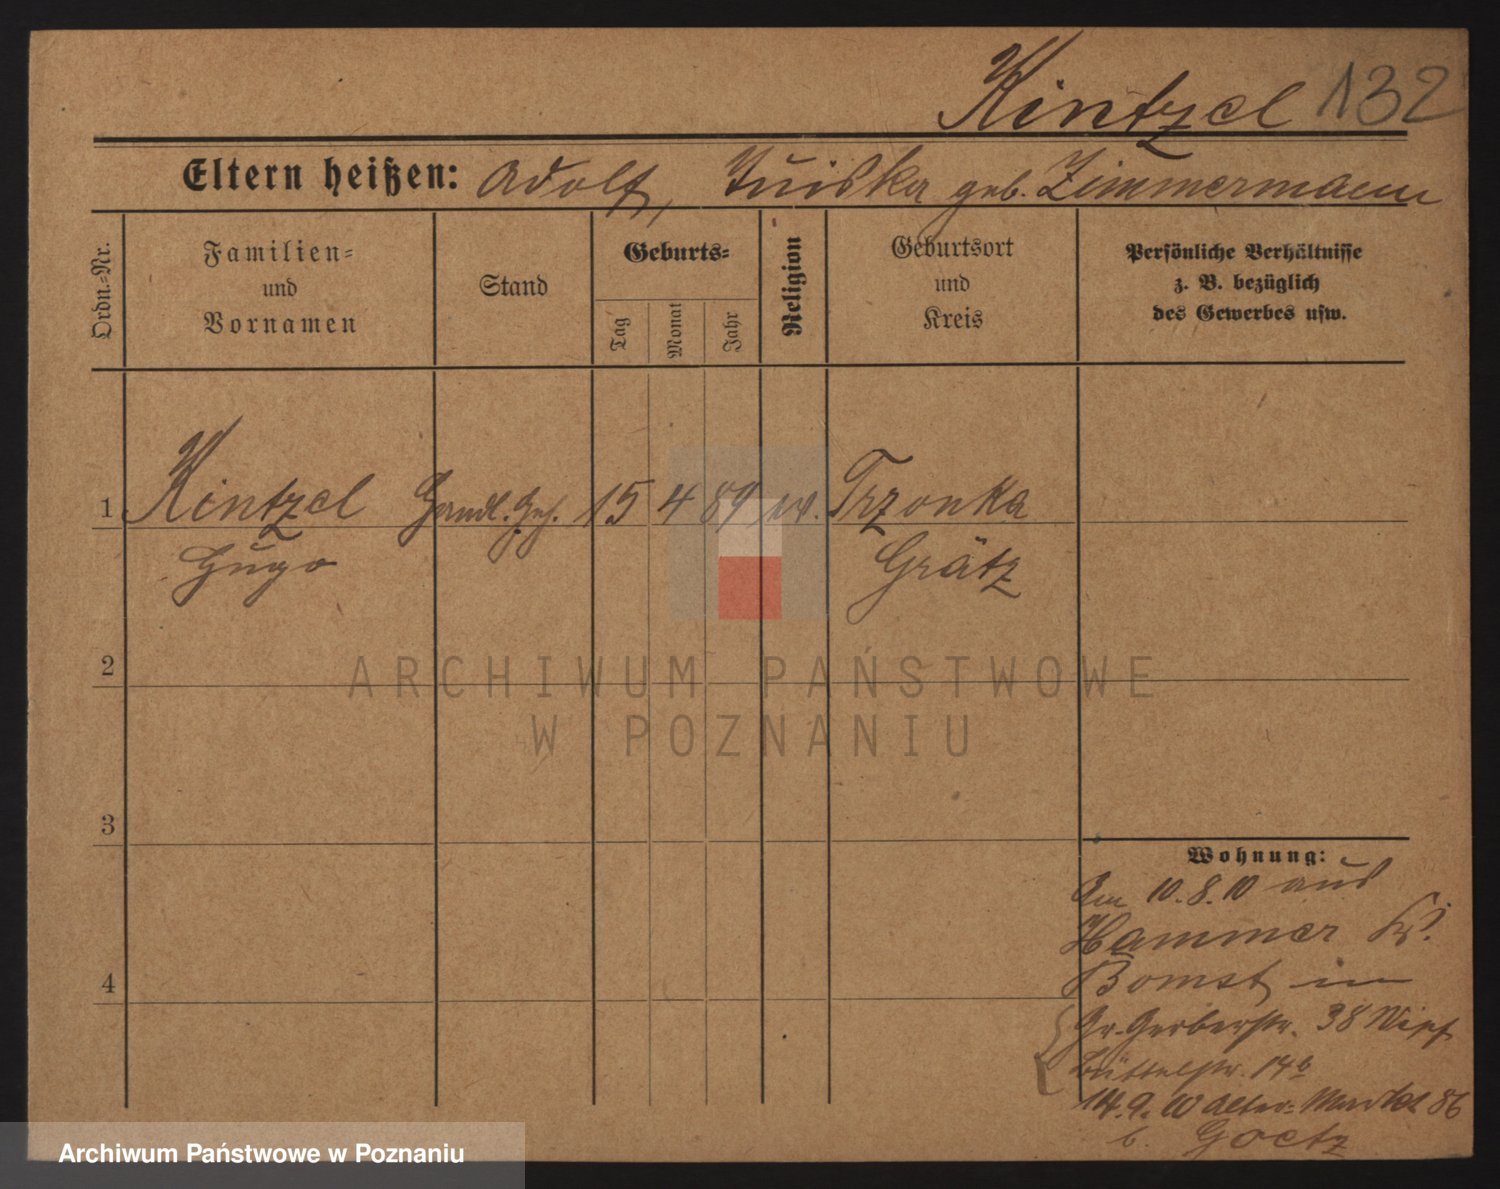 Kintzel 132
Eltern heißen: Adolf, geb. Zimmermann
Ordn.-Nr.
Familien-
und
Vornamen
Stand
Geburts-
Tag
Monat
Jahr
Religion
Geburtsort
und
Kreis
Persönliche Verhältnisse
z. B. bezüglich
des Gewerbes usw.
1 Kintzel Handl. Geh. 15 4 89 ev. Trzonka
Hugo Grätz
2
3
4
Wohnung:
Am 10.8.10 aus
Hammer Ks.
Bomst in
Gr. Gerberstr. 38
Büttelstr. 14b
14.9.10 Alter Markt 86
b. Goetz
ARCHIWUM PAŃSTWOWE
W POZNANIU
Archiwum Państwowe w Poznaniu